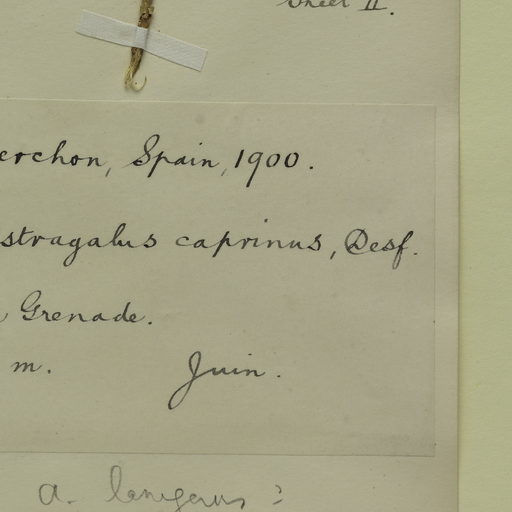 Sheet II.
erchon, Spain, 1900.
stragalus caprinus, Desf.
Grenade.
m. Juin.
a. lanigerus ?